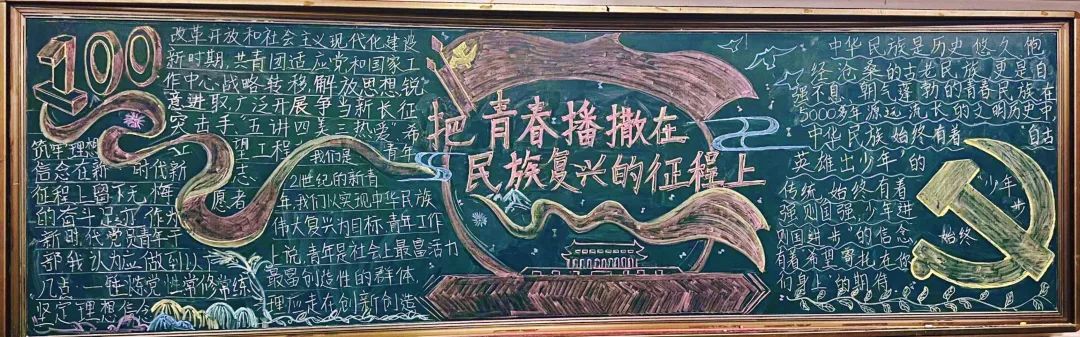 100
改革开放和社会主义现代化建设
新时期,共青团适应党和国家工
作中心战略转移,解放思想,锐
意进取,广泛开展争当新长征
突击手、"五讲四美三热爱"、希
望工程、青年
志愿者
筑牢理想
信念在新时代新
征程上留下无悔
的奋斗足迹,作为
新时代党员青年干
部我认为应做到以下
几点:一锤炼党性常修常练
坚定理想信念
我们是
世纪的新青
年,我们以实现中华民族
伟大复兴为目标,青年工作
上说,青年是社会上最富活力
最富创造性的群体
理应走在创新创造
把青春播撒在
民族复兴的征程上
中华民族是历史悠久、饱
经沧桑的古老民族,更是自
强不息、朝气蓬勃的青春民族。在
5000多年源远流长的文明历史中,
中华民族始终有着"自古
英雄出少年"的
传统,始终有着"少年
强则国强,少年进
步则国进步"的信念,始终
有着希望寄托在你
们身上"的期待。